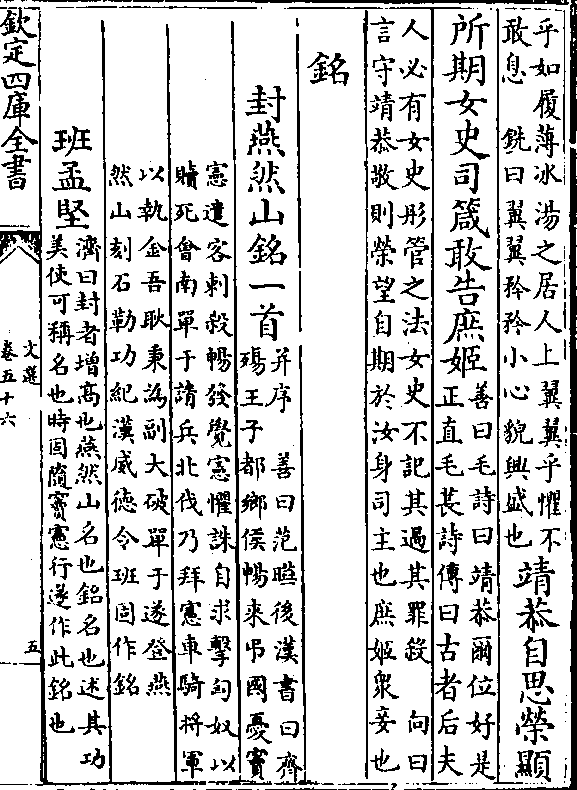 乎如履薄冰湯之居人上翼翼乎懼不
敢息　銑曰翼翼矜矜小心貌興盛也
靖恭自思榮顯
所期女史司箴敢告庶姬
善曰毛詩曰靖恭爾位好是
正直毛萇詩傳曰古者后夫
人必有女史彤管之法女史不記其過其罪殺　向曰
言守靖恭敬則榮望自期於汝身司主也庶姬衆妾也
銘
封燕然山銘一首
并序　善曰范曄後漢書曰齊
殤王子都鄉侯暢來弔國憂竇
憲遣客刺殺暢發覺憲懼誅自求擊匈奴以
贖死會南單于請兵北伐乃拜憲車騎將軍
以執金吾耿秉為副大破單于遂登燕
然山刻石勒功紀漢威德令班固作銘
班孟堅
濟曰封者增高也燕然山名也銘名也述其功
美使可稱名也時固隨竇憲行遂作此銘也
欽定四庫全書
文選
卷五十六
五